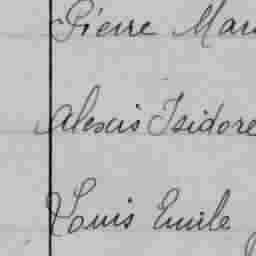 Pierre Mari
Alexis Isidore
Louis Emile